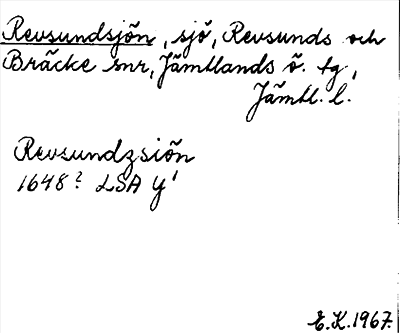 Revsundsjön, sjö, Revsunds och
Bräcke snr, Jämtlands ö. tg,
Jämtl. l.
Revsundzsiön
1648? LSA Y1
E.K. 1967.